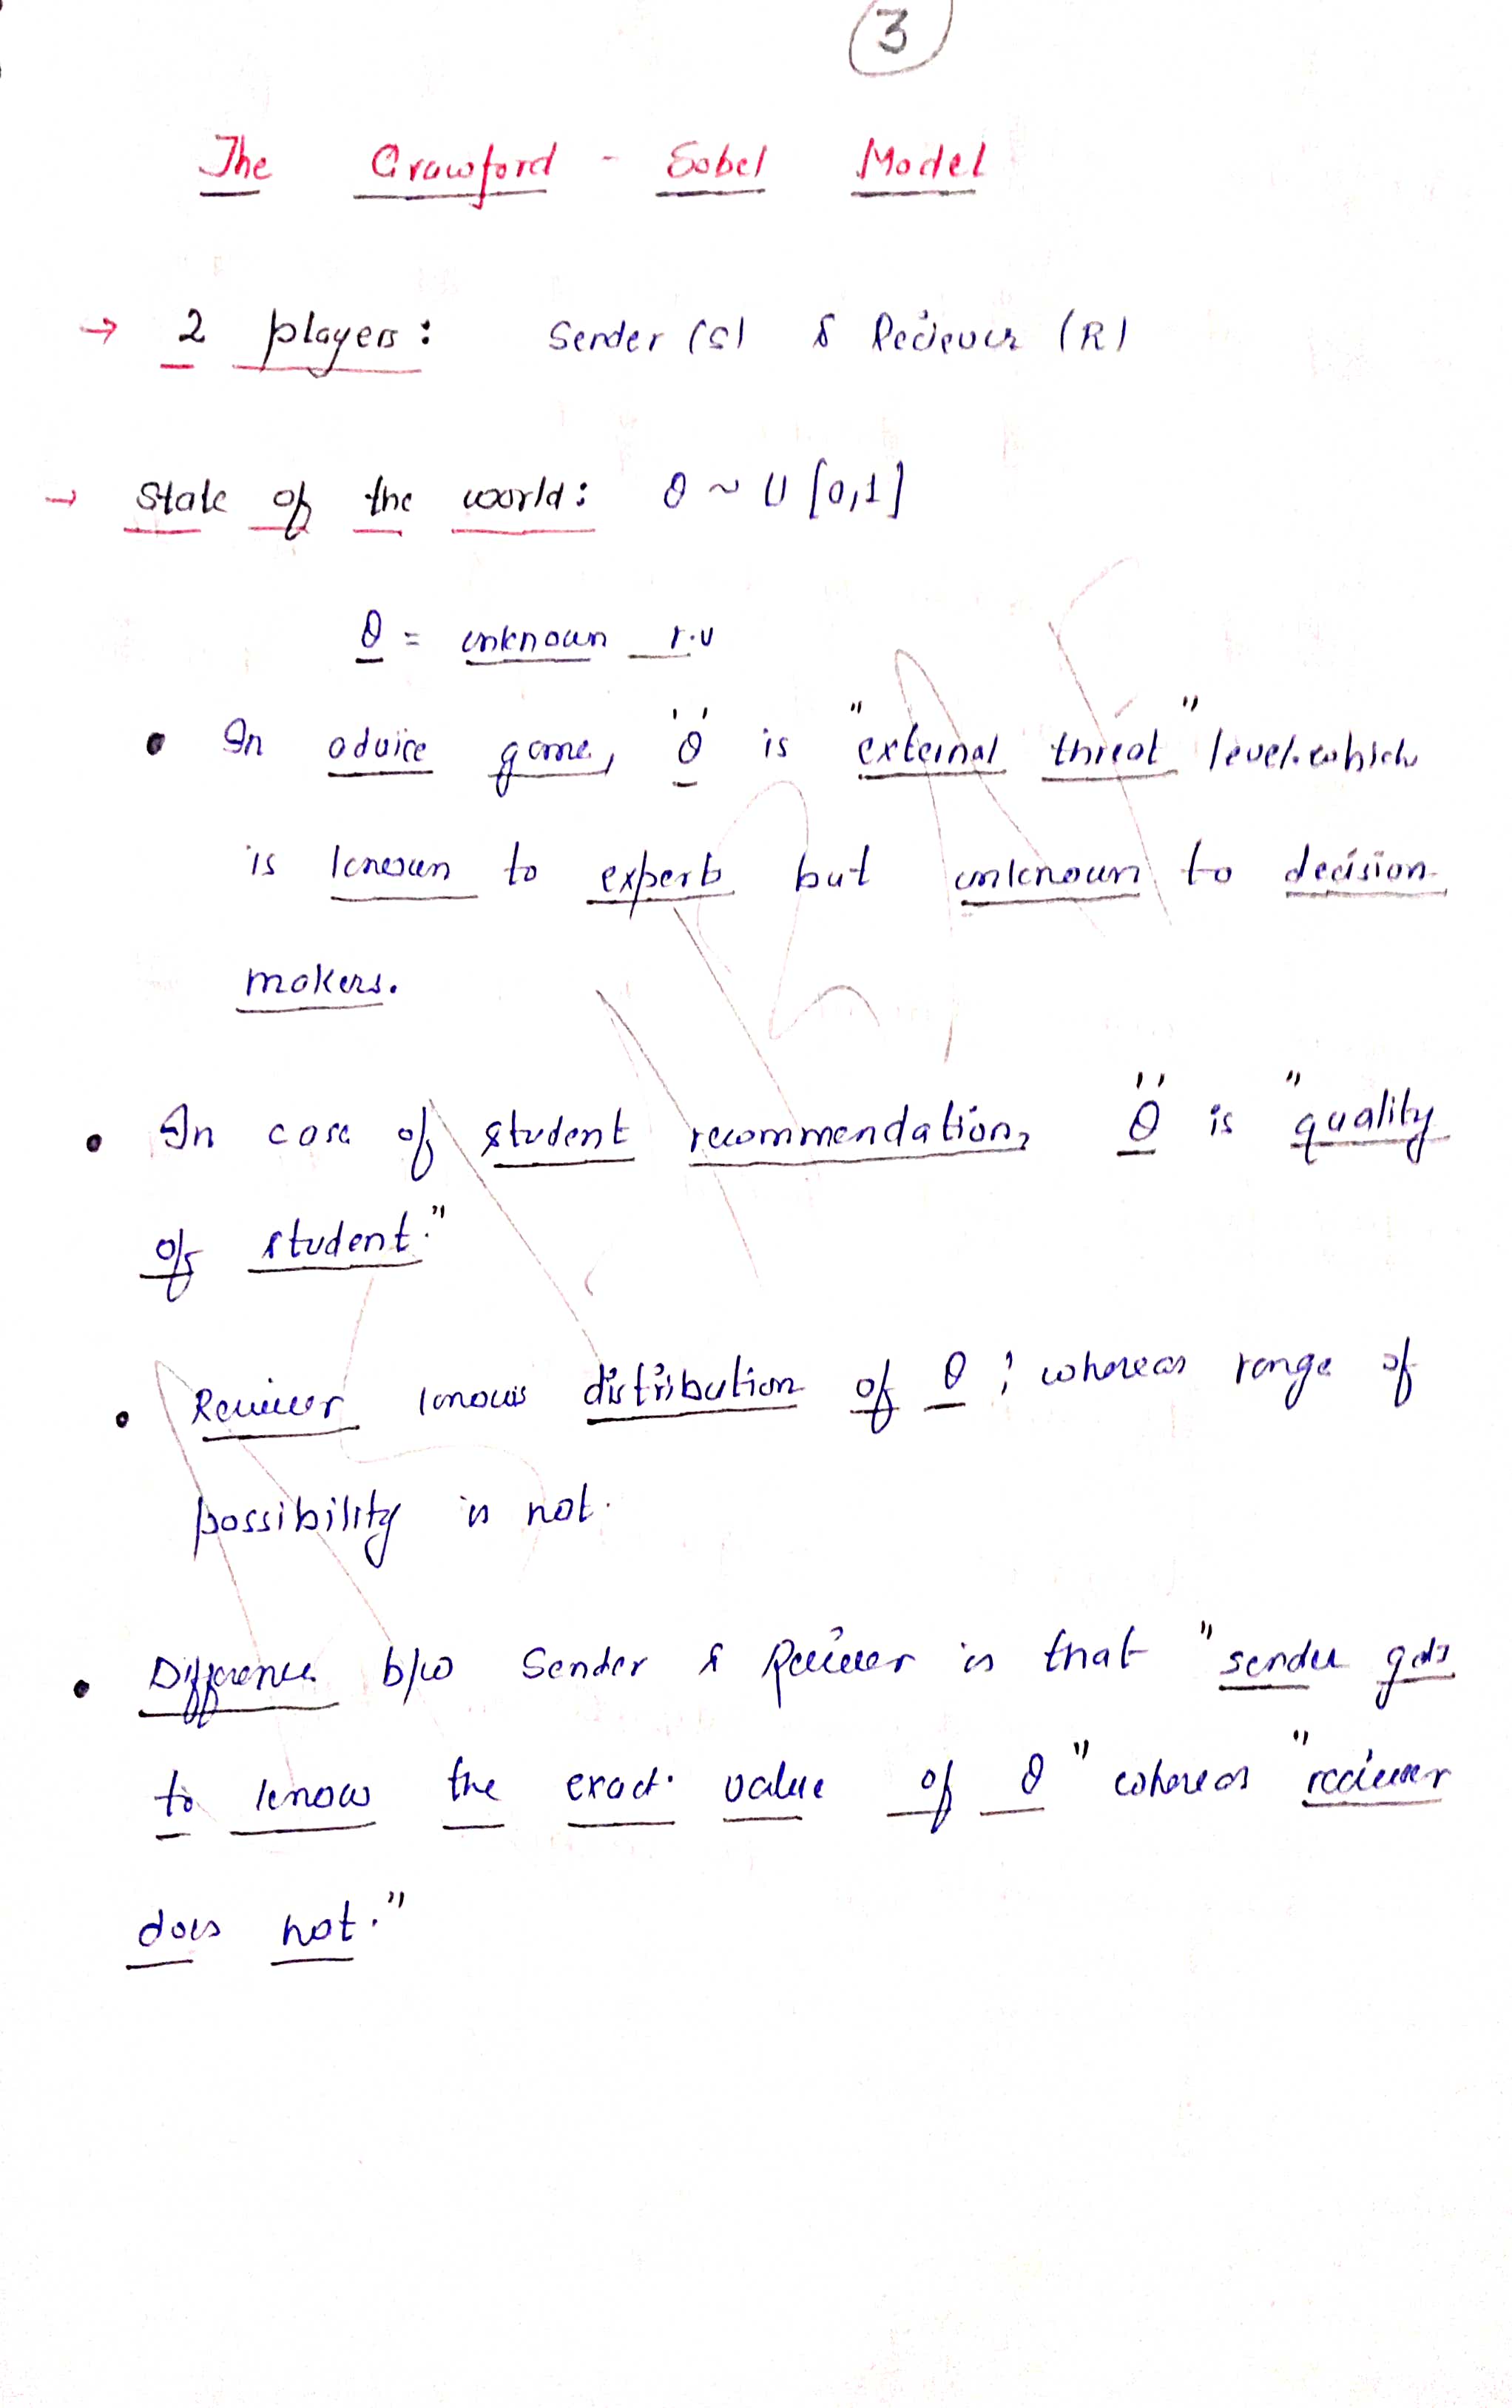 3
The Crawford - Sobel Model
→ 2 players: Sender (S) & Reciever (R)
→ State of the world: θ ~ U [0,1]
θ = unknown r.v
• In advice game, 'θ' is "external threat" level which
is known to experts but unknown to decision
makers.
• In case of student recommendation, 'θ' is "quality
of student."
• Reciever knows distribution of θ ; whereas range of
possibility is not.
• Difference b/w Sender & Reciever is that "sender gets
to know the exact value of θ" whereas "reciever
does not."